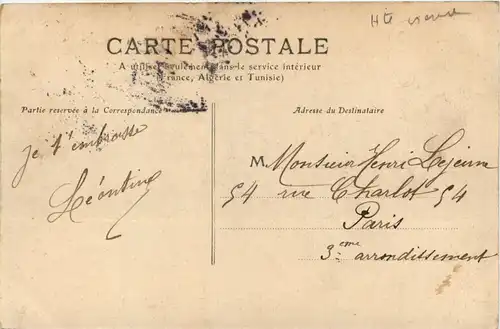 Hte vienne
CARTE POSTALE
A utiliser seulement dans le service intérieur
(France, Algérie et Tunisie)
Partie reservée à la Correspondance
Adresse du Destinataire
je t'embrasse
Léontine
M. Monsieur Henri Lejeune
54 rue Charlot 54
Paris
3eme arrondissement